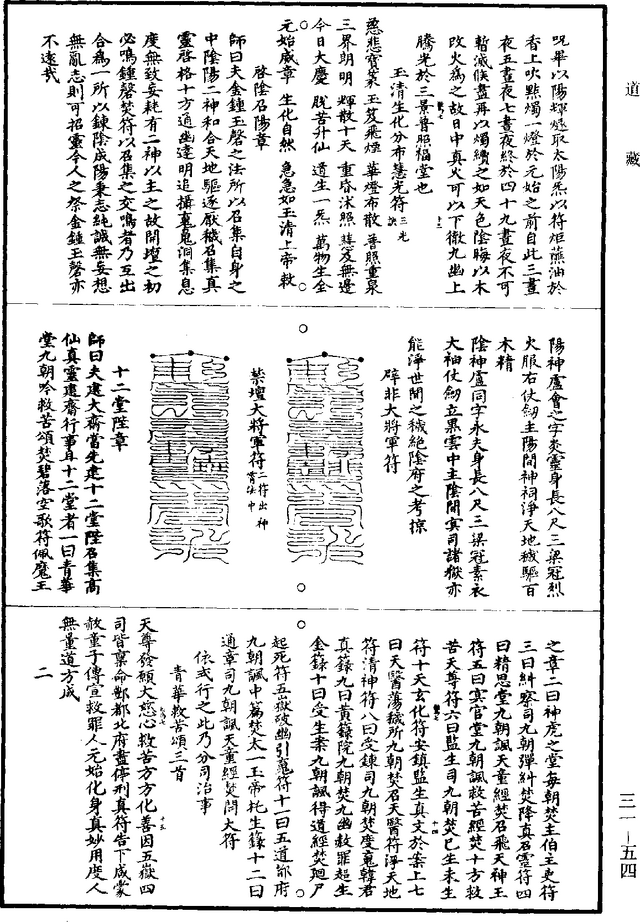 道藏
呪畢以陽輝燧取太陽炁以符炬蘸油於
香上吹點燭一燈於元始之前自此三晝
夜五晝夜七晝夜終於四十九晝夜不可
暫滅俟晝再以燭續之如天色陰晦以木
改火為之故日中真火可以下徹九幽上
騰光於三景普照福堂也
玉清生化分布慧光符
慈悲寶篆 玉芨飛煙 華燈布散 普照重泉
三界朗明 輝散十天 重昏沐照 慧度無邊
今日大慶 脫苦升仙 道生一炁 萬物生全
元始威章 生化自然 急急如玉清上帝敕
啓陰召陽章
師曰夫金鍾玉磬之法所以召集自身之
中陰陽二神和合天地驅逐厭穢召集真
靈啓格十方通幽達明追攝䰟䰟洞集息
度無致妄耗有二神以主之故開壇之初
必鳴鍾磬焚符以召集之交鳴者乃互出
合為一所以鍊陰成陽秉志純誠無妄想
無亂志則可招靈令人之祭金鍾玉磬亦
不遠哉
陽神盧會之字炎靈身長八尺三梁冠烈
火服右仗劒主陽間神祠淨天地穢驅百
木精
陰神盧同字永夫身長八尺三梁冠素衣
大袖仗劒立黑雲中主陰間冥司諸獄亦
能淨世間之穢絕陰府之考掠
辟非大將軍符
禁壇大將軍符 二符出神霄法中
十二堂陛章
師曰夫建大齋當先建十二堂陛召集高
仙真靈建齋行事且十二堂者一曰青華
堂九朝吟救苦頌焚碧落空歌符佩魔王
之章二曰神虎之堂每朝焚主伯主吏符
三曰糾察司九朝彈糾焚降真召靈符四
曰精思堂九朝諷天童經焚召飛天神王
符五曰冥官堂九朝諷救苦經焚十方救
苦天尊符六曰監生司九朝焚已生未生
符十天玄化符安鎮監生真文於案上七
曰天醫蕩穢所九朝焚召天醫符淨天地
符清神符八曰受鍊司九朝焚度䰟韓君
真籙九曰黃籙院九朝焚九幽救罪超生
金籙十曰受生案九朝諷得道經焚廻尸
起死符五嶽破幽引䰟符十一曰五道部府
九朝諷中篇焚太一玉帝托生籙十二曰
通章司九朝諷天童經焚開大符
依式行之此乃分司治事
青華救苦頌三首
天尊發願大慈心救苦方方化善因五嶽四
司皆稟命酆都北府盡停刑真符告下咸蒙
赦童子傳宣救罪人元始化身真妙用度人
無量道方成
二
三一—五四